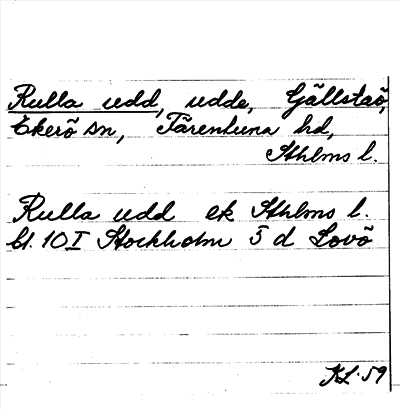 Rulla udd, udde, Gällstaö,
Ekerö sn, Färentuna hd,
Sthlms l.
Rulla udd ek Sthlms l.
bl. 10 I Stockholm 5 d Lovö
KL. 59